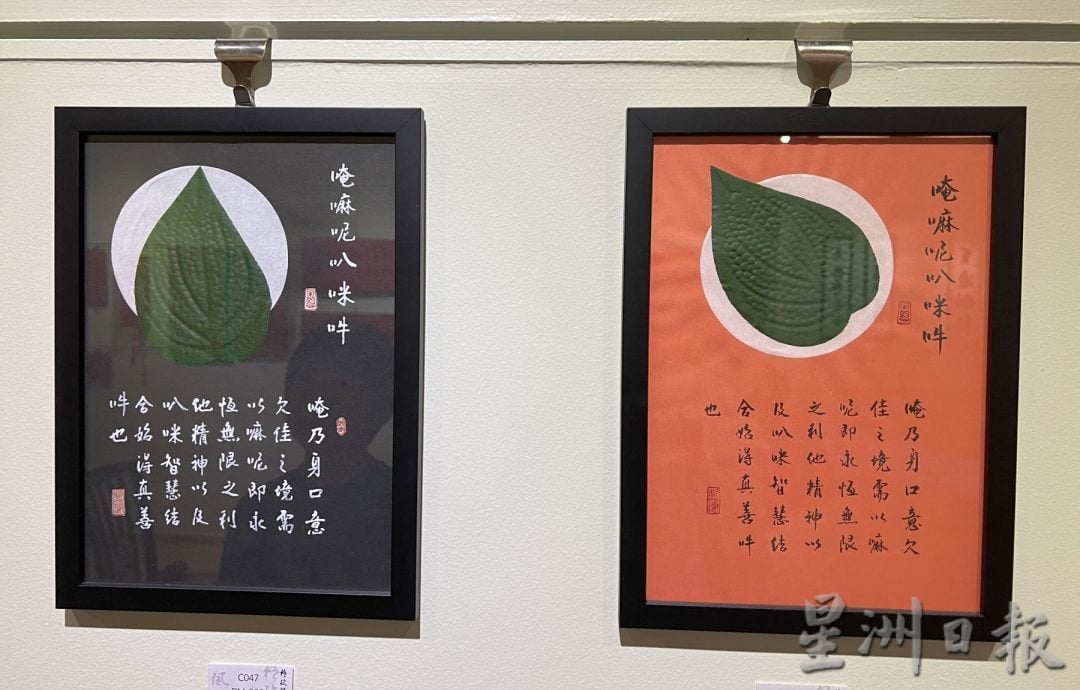 唵嘛呢叭咪吽
唵乃身口意
欠佳之境需
以嘛呢即永
恆無限之利
他精神以及
叭咪智慧结
合始得真善
吽也
唵嘛呢叭咪吽
唵乃身口意欠
佳之境需以嘛
呢即永恆無限
之利他精神以
及叭咪智慧结
合始得真善吽
也
C047
星洲日报